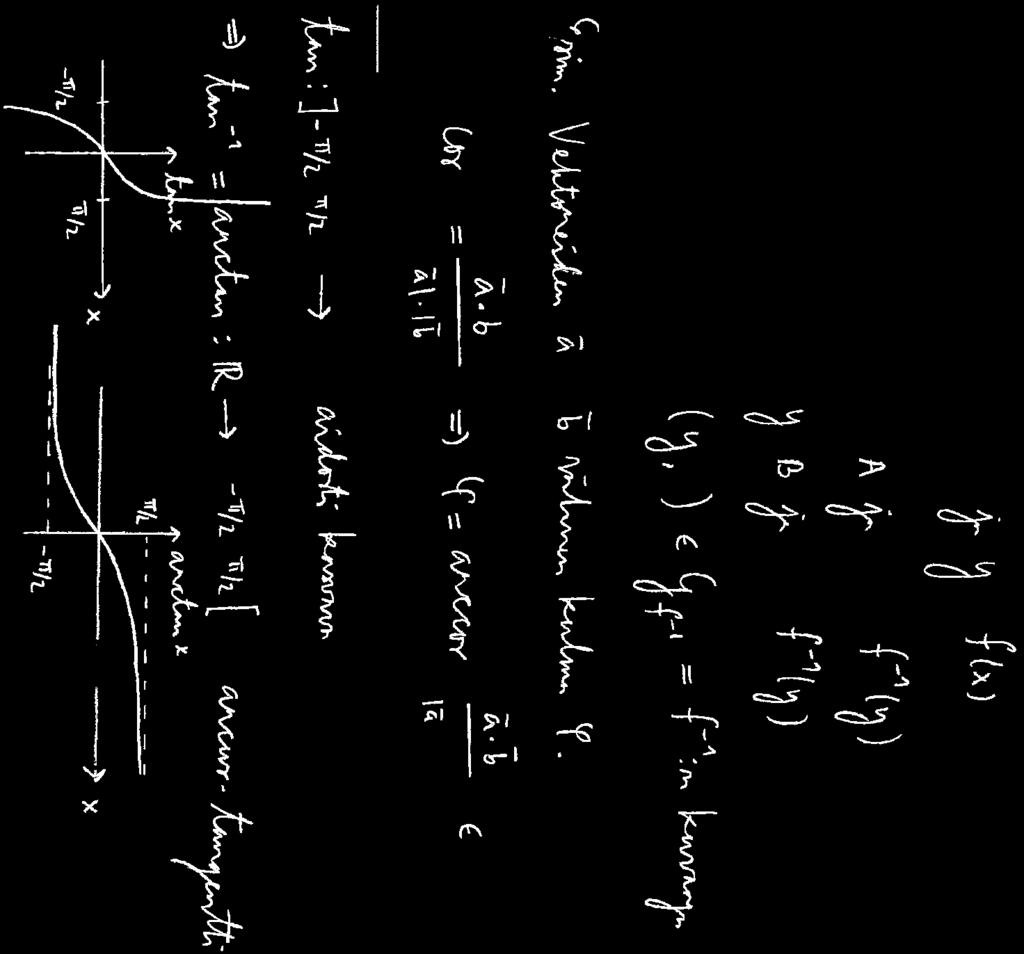 ja y f(x)
A ja f⁻¹(y)
y B ja f⁻¹(y)
(y, ) ∈ G f⁻¹ = f⁻¹:n kuvaaja
Esim. Vektoreiden ā b̄ välinen kulma φ.
cos = ā·b / ā|·|b̄ ⇒ φ = arccos ā·b̄ / |ā ∈
tan : ]-π/2 π/2 → aidosti kasvava
⇒ tan⁻¹ = arctan : ℝ → -π/2 π/2[ arcus-tangentti
tan x
-π/2 π/2 x
arctan x
π/2
-π/2
x